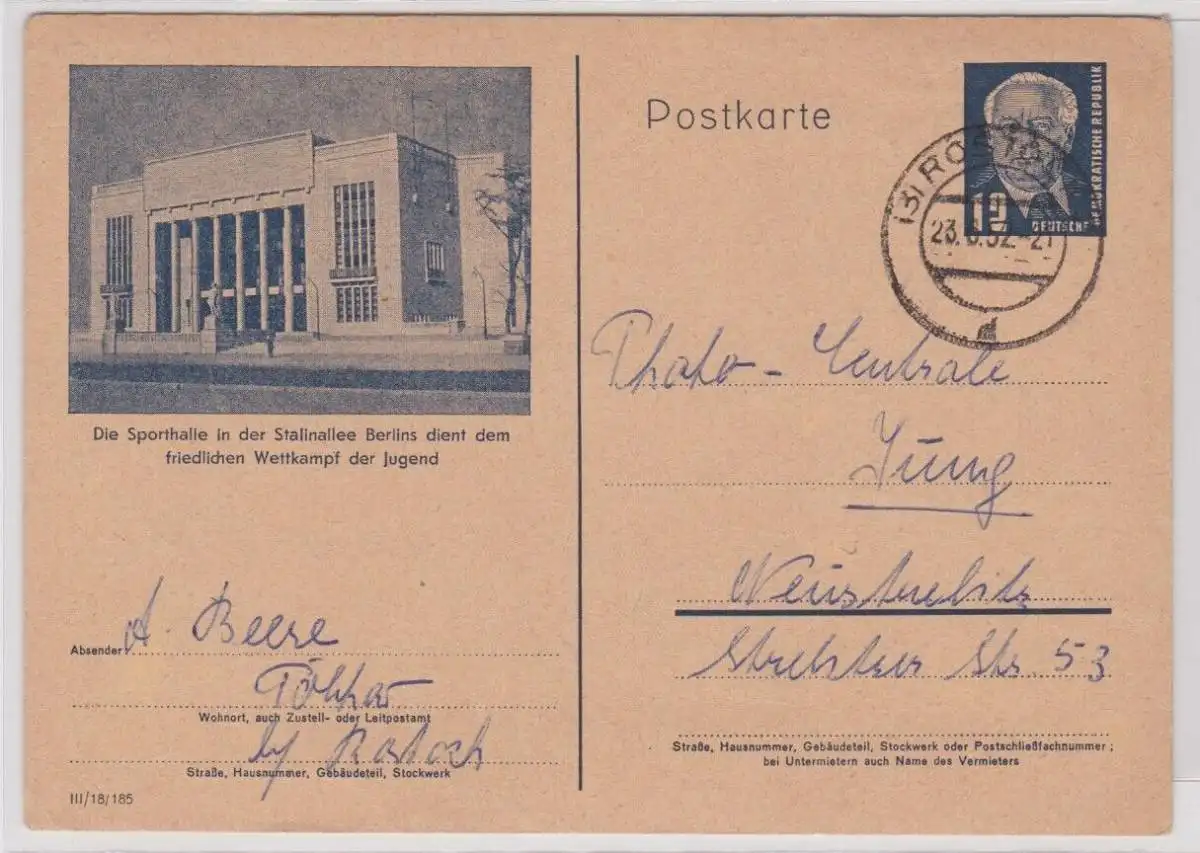 Postkarte
DEUTSCHE DEMOKRATISCHE REPUBLIK
12
(3) ROSTOCK
23. .52.-21
d
Die Sporthalle in der Stalinallee Berlins dient dem
friedlichen Wettkampf der Jugend
Photo - Centrale
Jung
Neustrelitz
Strelitzer Str. 53
Straße, Hausnummer, Gebäudeteil, Stockwerk oder Postschließfachnummer ;
bei Untermietern auch Name des Vermieters
Absender A. Beese
Wohnort, auch Zustell- oder Leitpostamt
by Rostock
Straße, Hausnummer, Gebäudeteil, Stockwerk
III/18/185